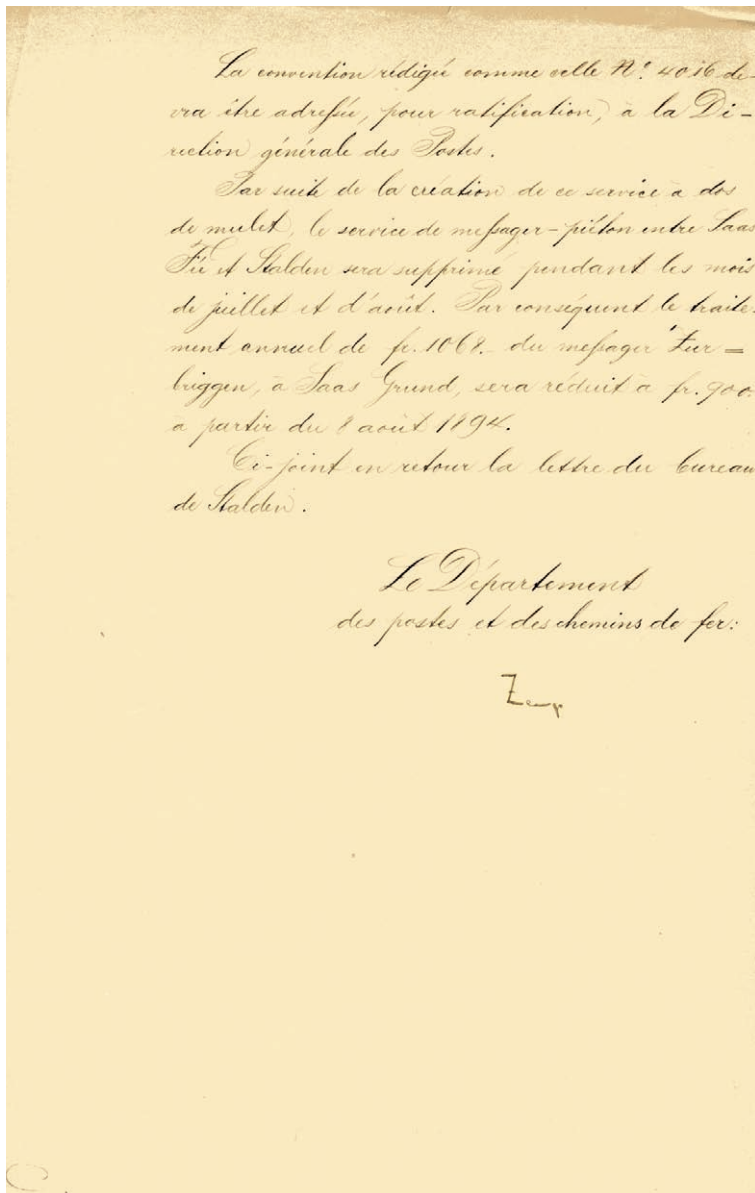 La convention rédigée comme celle N.º 4016 de-
vra être adressée, pour ratification, à la Di-
rection générale des Postes.
Par suite de la création de ce service à dos
de mulet, le service de messager-piéton entre Saas
Fée et Stalden sera supprimé pendant les mois
de juillet et d'août. Par conséquent le traite-
ment annuel de fr. 1068.- du messager Zur=
briggen, à Saas Grund, sera réduit à fr. 900.
à partir du 8 août 1894.
Ci-joint en retour la lettre du bureau
de Stalden.
Le Département
des postes et des chemins de fer:
Zemp